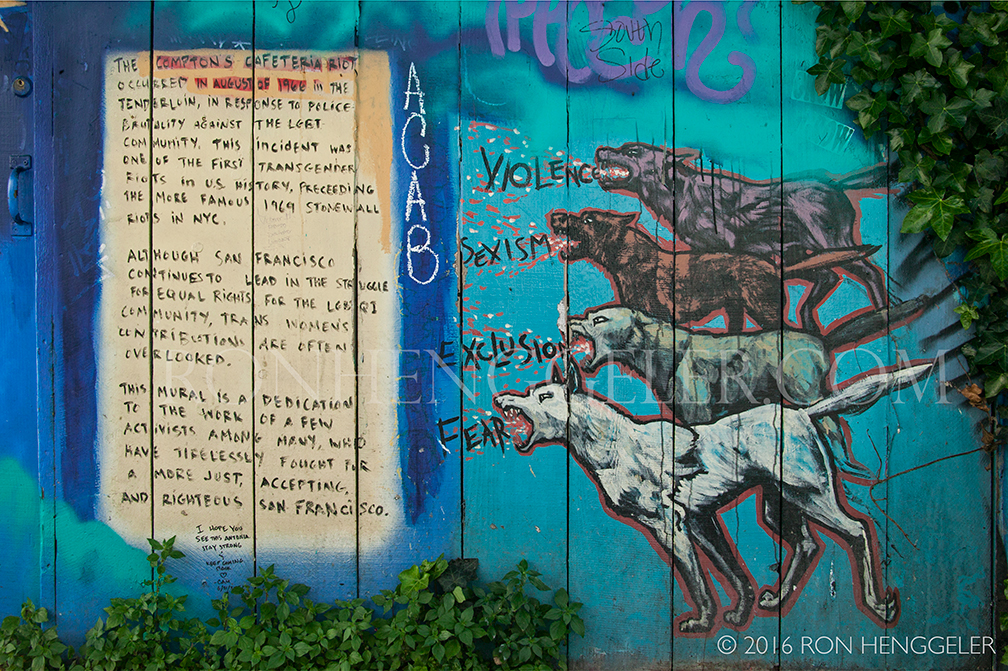 THE COMPTON'S CAFETERIA RIOT
OCCURRED IN AUGUST OF 1966 IN THE
TENDERLOIN, IN RESPONSE TO POLICE
BRUTALITY AGAINST THE LGBT
COMMUNITY. THIS INCIDENT WAS
ONE OF THE FIRST TRANSGENDER
RIOTS IN U.S. HISTORY, PRECEEDING
THE MORE FAMOUS 1969 STONEWALL
RIOTS IN NYC.
ALTHOUGH SAN FRANCISCO
CONTINUES TO LEAD IN THE STRUGGLE
FOR EQUAL RIGHTS FOR THE LGBTQI
COMMUNITY, TRANS WOMEN'S
CONTRIBUTIONS ARE OFTEN
OVERLOOKED.
THIS MURAL IS A DEDICATION
TO THE WORK OF A FEW
ACTIVISTS AMONG MANY, WHO
HAVE TIRELESSLY FOUGHT FOR
A MORE JUST, ACCEPTING,
AND RIGHTEOUS SAN FRANCISCO.
I HOPE YOU
SEE THIS
STAY STRONG
&
KEEP COMING
ACAB
South
Side
VIOLENCE
SEXISM
EXCLUSION
FEAR
RONHENGGELER.COM
© 2016 RON HENGGELER